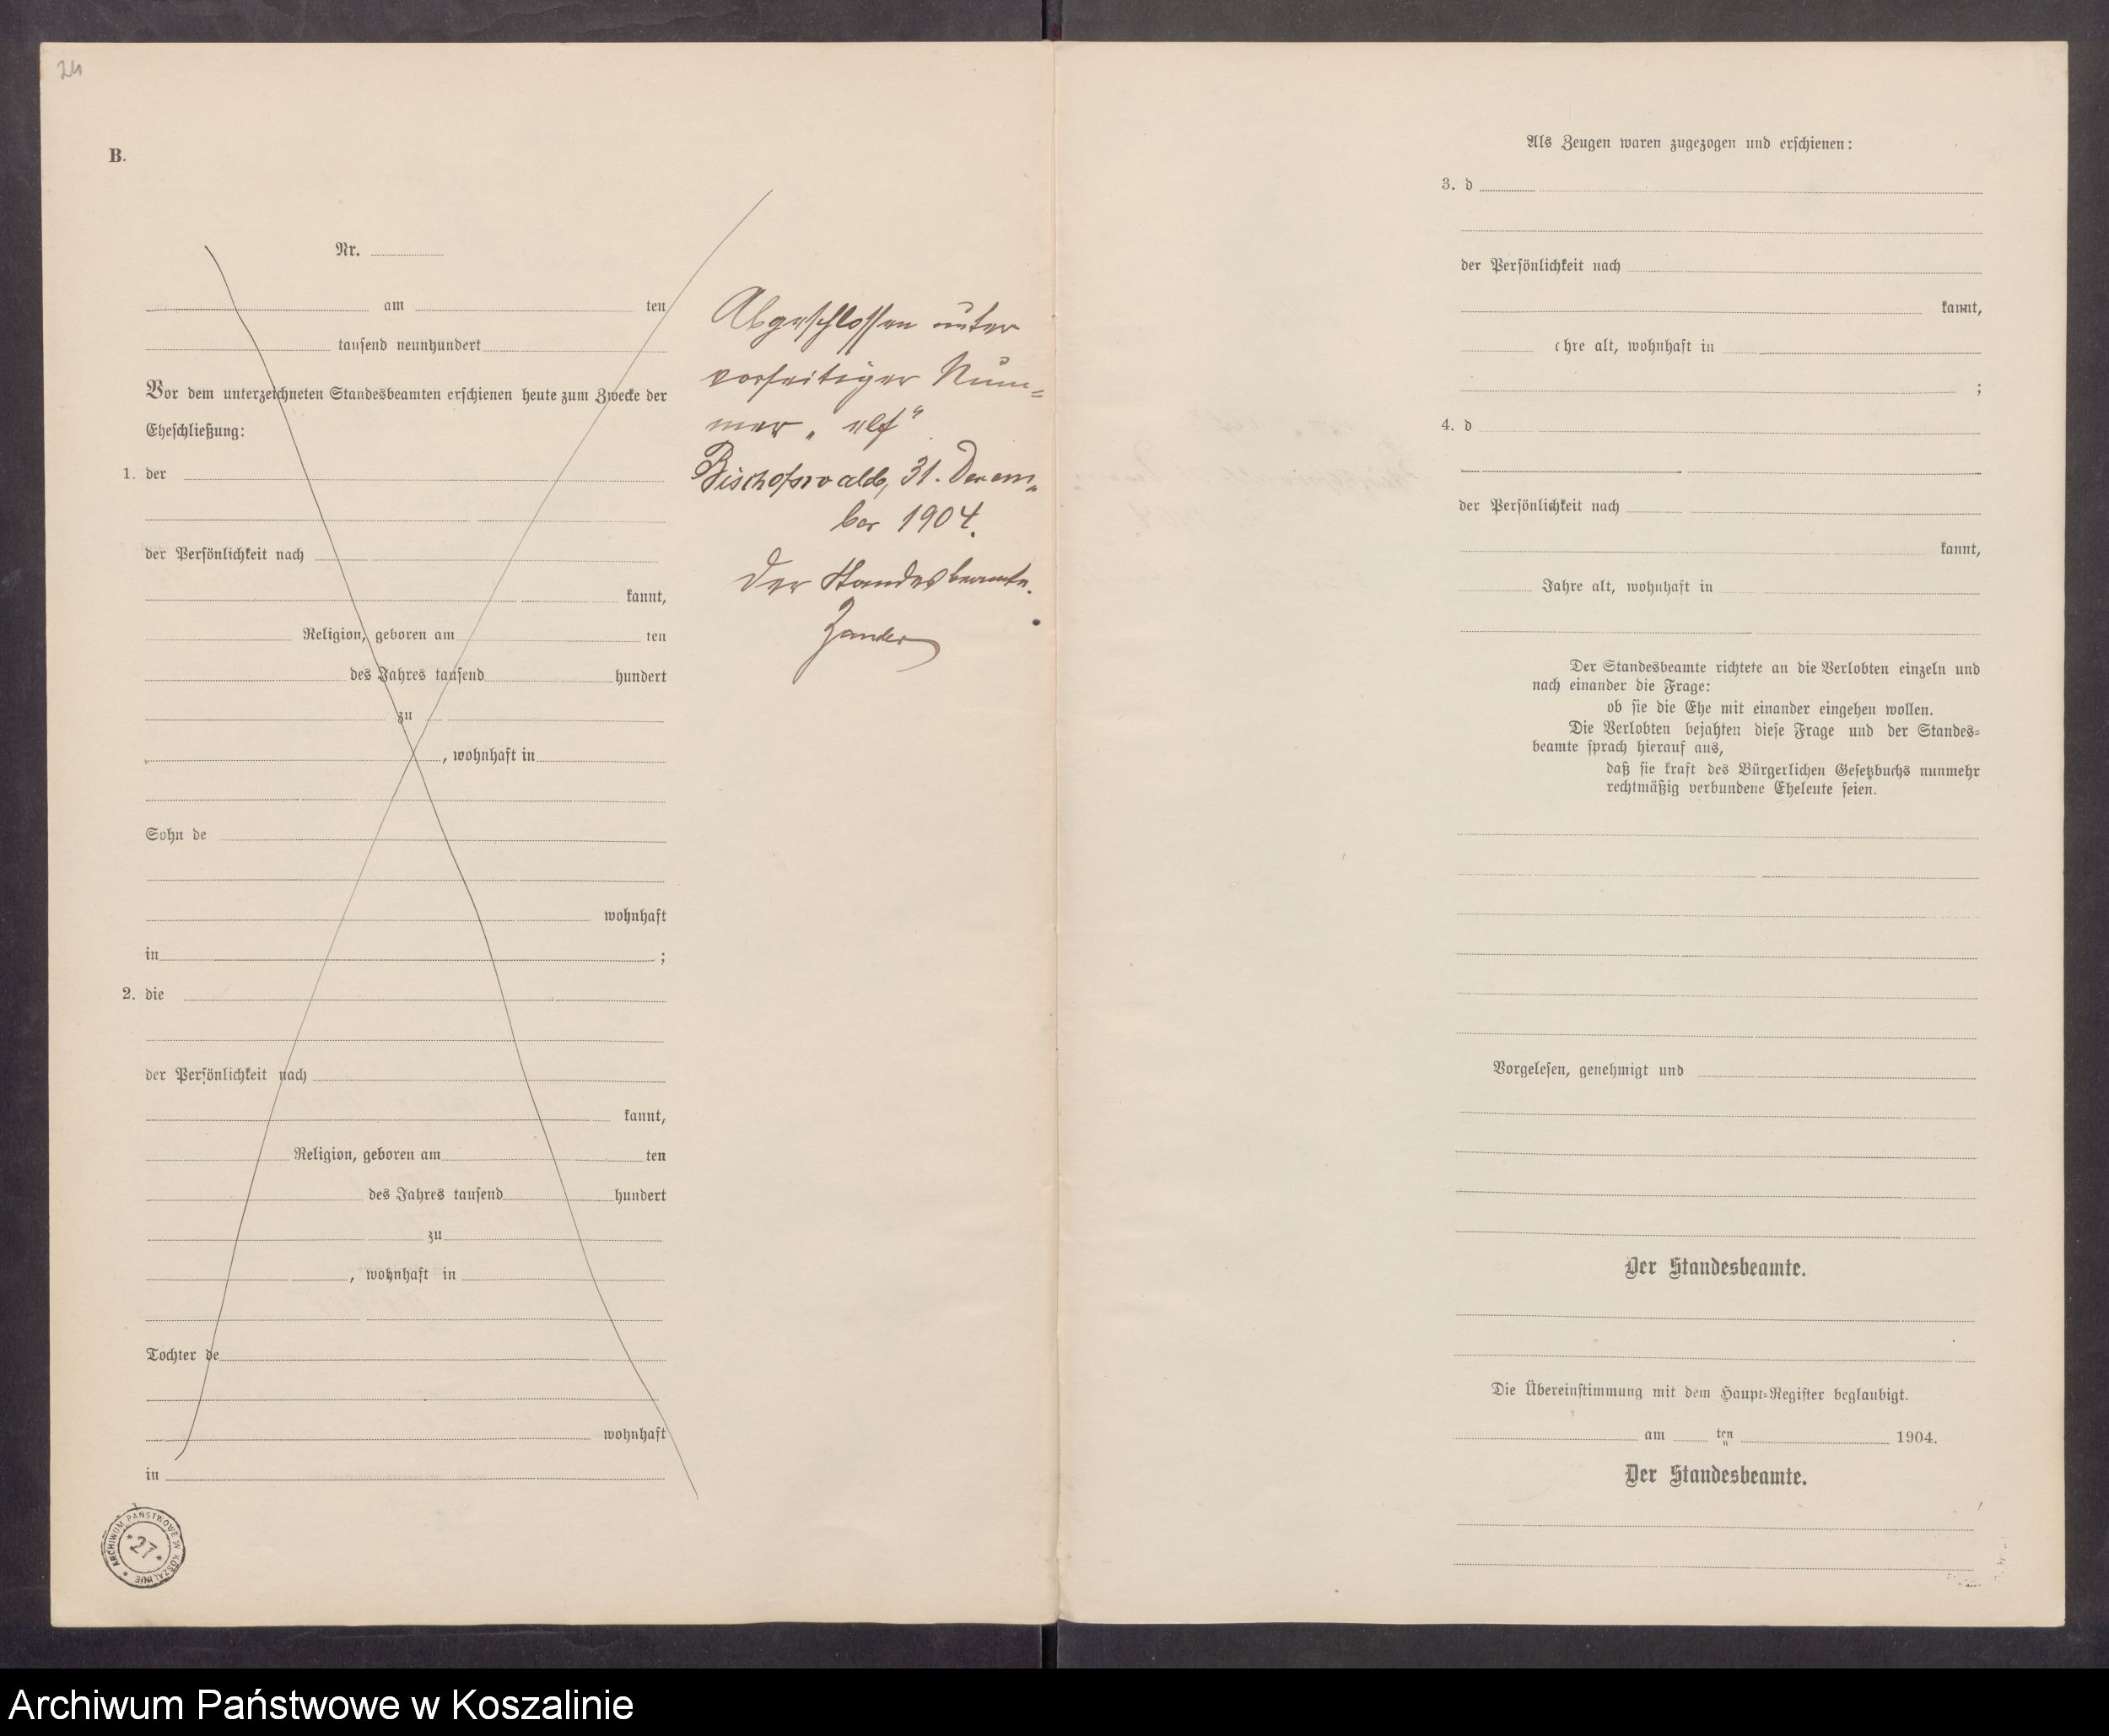 24
B.
Nr.
am ten
tausend neunhundert
Vor dem unterzeichneten Standesbeamten erschienen heute zum Zwecke der
Eheschließung:
1. der
der Persönlichkeit nach
kannt,
Religion, geboren am ten
des Jahres tausend hundert
zu
, wohnhaft in
Sohn de
wohnhaft
in ;
2. die
der Persönlichkeit nach
kannt,
Religion, geboren am ten
des Jahres tausend hundert
zu
, wohnhaft in
Tochter de
wohnhaft
in
Abgeschlossen unter
vorseitiger Num=
mer „elf“
Bischofswalde, 31. Dezem„
ber 1904.
Der Standesbeamte.
Zander
ARCHIWUM PAŃSTWOWE W KOSZALINIE
*27*
Als Zeugen waren zugezogen und erschienen:
3. d
der Persönlichkeit nach
kannt,
hre alt, wohnhaft in
;
4. d
der Persönlichkeit nach
kannt,
Jahre alt, wohnhaft in
Der Standesbeamte richtete an die Verlobten einzeln und
nach einander die Frage:
ob sie die Ehe mit einander eingehen wollen.
Die Verlobten bejahten diese Frage und der Standes=
beamte sprach hierauf aus,
daß sie kraft des Bürgerlichen Gesetzbuchs nunmehr
rechtmäßig verbundene Eheleute seien.
Vorgelesen, genehmigt und
Der Standesbeamte.
Die Übereinstimmung mit dem Haupt=Register beglaubigt.
am ten 1904.
Der Standesbeamte.
Archiwum Państwowe w Koszalinie